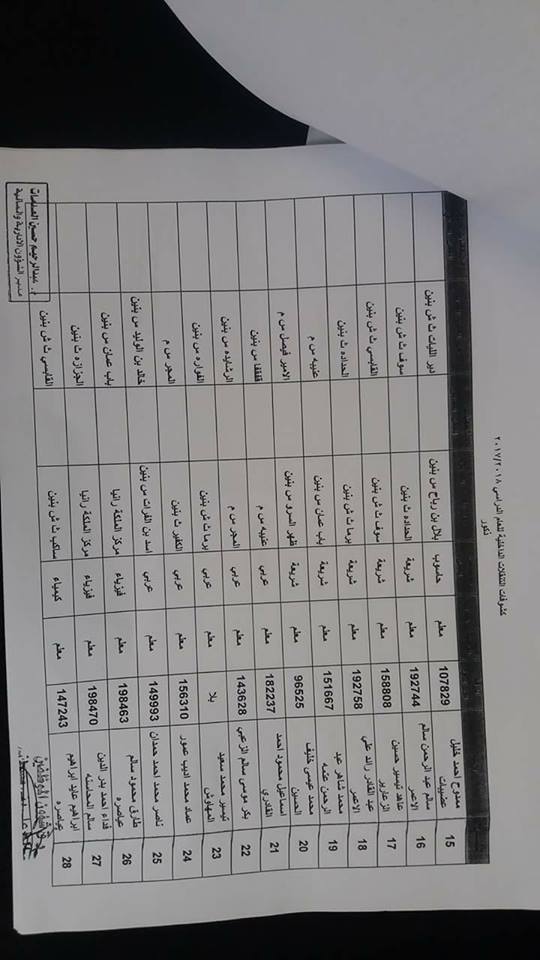 كشوفات التنقلات الداخلية للعام الدراسي ٢٠١٧/٢٠١٨
ذكور
15 ممدوح احمد خليل عضيبات 107829 معلم حاسوب بلال بن رباح س بنين دير الليات ث ش بنين
16 سالم عبد الرحمن سالم الاعمر 192744 معلم شريعة الحداده ث بنين سوف ث ش بنين
17 عاهد تيسير حسين الزعارير 158808 معلم شريعة سوف ث ش بنين القابسي ث ش بنين
18 عبد القادر رائد علي الاعمر 192758 معلم شريعة برما ث ش بنين الحداده ث بنين
19 محمد شاهر عبد الرحمن عتمه 151667 معلم شريعة باب عمان س بنين عنيبه س م
20 محمد عيسى خليف الحسين 96525 معلم شريعة ظهر السرو س بنين الامير فيصل س م
21 اسماعيل محمود احمد القادري 182237 معلم عربي عنيبه س م قفقفا س بنين
22 بكر موسى سالم الزعبي 143628 معلم عربي المجر س م الرشايده س بنين
23 تيسير محمد سعيد بلا معلم عربي برما ث ش بنين الفواره س بنين
24 عماد محمد اديب عمور 156310 معلم عربي الكفير ث بنين المجر س م
25 ناصر محمد احمد حمدان 149993 معلم عربي اسد بن الفرات س بنين خالد بن الوليد س بنين
26 طارق محمود سالم عياصره 198463 معلم فيزياء مركز الملكة رانيا باب عمان س بنين
27 فداء احمد بدر الدين سالم المحاسنه 198470 معلم فيزياء مركز الملكة رانيا الجزازه ث بنين
28 ابراهيم عايد ابراهيم عياصره 147243 معلم كيمياء ساكب ث ش بنين القابسي ث ش بنين
مدير الشؤون الادارية والمالية
م. عبدالرحيم حسين